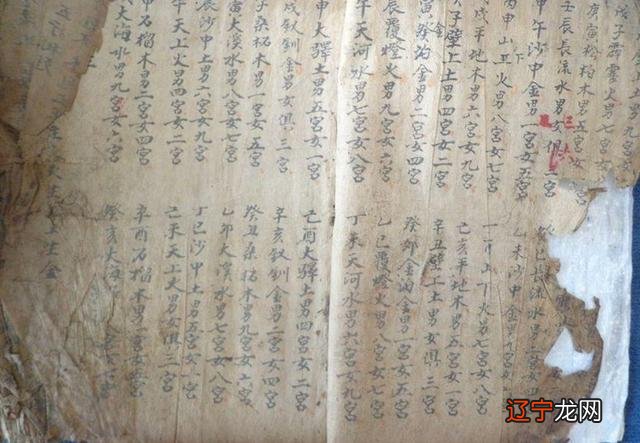 戊子霹靂火男七宮女
庚寅松柏木男五宮女
壬辰長流水男女俱三宮
甲午沙中金男一宮女五宮
丙申山下火男八宮女七宮
戊戌平地木男六宮女九宮
子壁上土男四宮女二宮
寅金泊金男二宮女四宮
辰覆燈火男九宮女六宮
午天河水男七宮女八宮
申大驛土男五宮女一宮
戌釵釧金男女俱三宮
子桑柘木男一宮女五宮
寅大溪水男八宮女七宮
辰沙中土男六宮女九宮
午天上火男四宮女二宮
申石榴木男二宮女四宮
大海水男九宮女六宮
巳長流水男二宮女四
乙未沙中金男九宮
丁酉山下火男七宮女八宮
己亥平地木男五宮女一宮
辛丑壁上土男女俱三宮
癸卯金泊金男一宮女五宮
乙巳覆燈火男八宮女七宮
丁未天河水男六宮女九宮
己酉大驛土男四宮女二宮
辛亥釵釧金男二宮女四宮
癸丑桑柘木男九宮女六宮
乙卯大溪水男七宮女八宮
丁巳沙中土男五宮女一宮
己未天上火男女俱三宮
辛酉石榴木男一宮女五宮
癸亥大海水男八宮女七宮
辽宁龙网